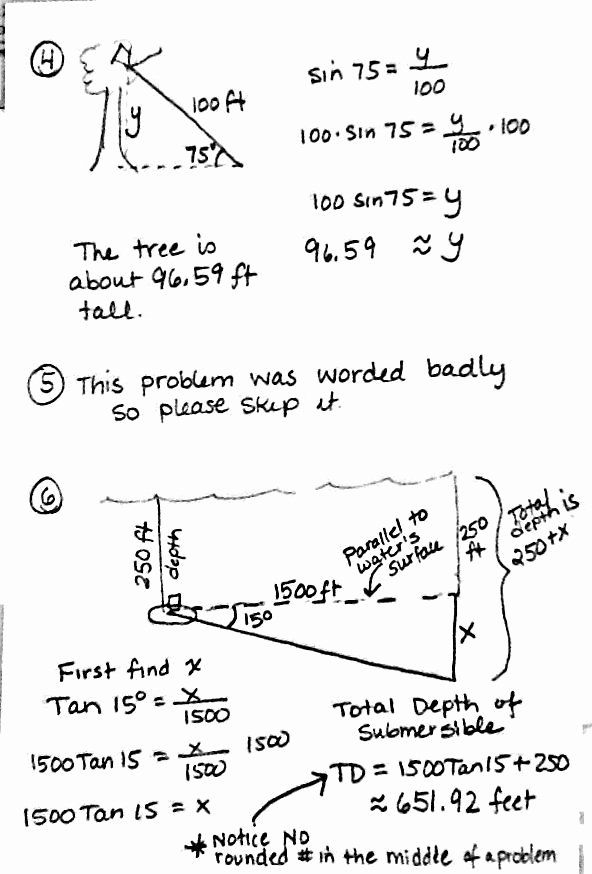 4
100 ft
y
75°
sin 75 = y/100
100 · sin 75 = y/100 · 100
100 sin 75 = y
96.59 ≈ y
The tree is
about 96.59 ft
tall.
5 This problem was worded badly
so please skip it.
6
250 ft
depth
1500 ft
15°
Parallel to
water's
surface
250
ft
x
Total
depth is
250+x
First find x
Tan 15° = x/1500
1500 Tan 15 = x/1500 1500
1500 Tan 15 = x
Total Depth of
Submersible
TD = 1500 Tan 15 + 250
≈ 651.92 feet
* Notice NO
rounded # in the middle of a problem